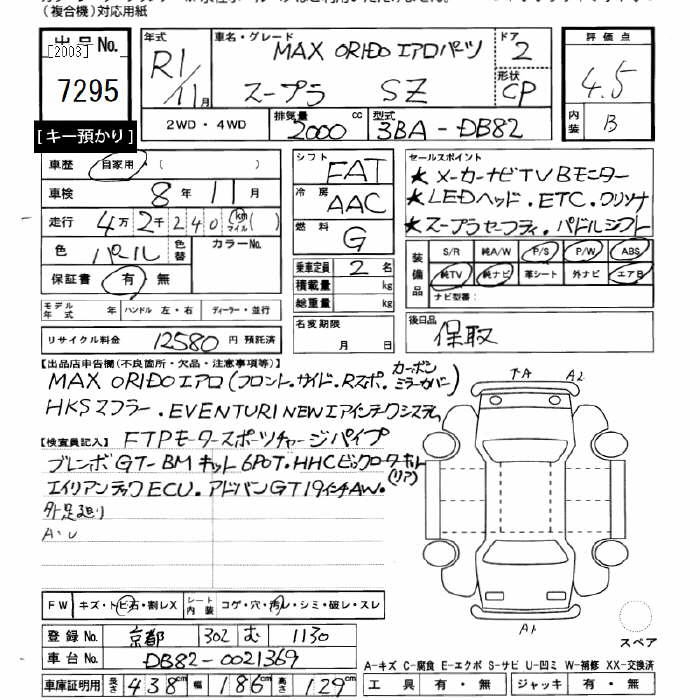 (複合機)対応用紙
出品No. [2003] 7295
【キー預かり】
年式 R1/11月
車名・グレード MAX ORIDO エアロパーツ
スープラ SZ
ドア 2
形状 CP
評価点 4.5
内装 B
2WD・4WD
排気量 2000 cc
型式 3BA-DB82
車歴 自家用 ( )
車検 8年 11月
走行 4万2千240 km マイル ( )
色 パール 色替 カラーNo.
保証書 有 無
モデル年式 年 ハンドル 左・右 ディーラー・並行
リサイクル料金 12580 円 預託済
シフト FAT
冷房 AAC
燃料 G
乗車定員 2 名
積載量 kg
総重量 kg
名変期限 月 日
セールスポイント
★メーカーナビTVBモニター
★LEDヘッド.ETC.クリソナ
★スープラセーフティ.パドルシフト
装備品
S/R 純A/W P/S P/W ABS
純TV 純ナビ 革シート 外ナビ エアB
ナビ型番:
後日品 保取
【出品店申告欄(不良箇所・欠品・注意事項等)】
MAX ORIDOエアロ(フロント.サイド.Rスポ.カーボンミラーカバー)
HKSマフラー.EVENTURI NEWエアインテークシステム
【検査員記入】 FTPモータースポーツチャージパイプ
ブレンボGT-BMキット6POT.HHCビックローターキット(リア)
エイリアンテックECU.アドバンGT19インチAW.
外足廻り
A.U
TA A2
A1
スペア
FW キズ・トビ石・割レX シート内装 コゲ・穴・汚レ・シミ・破レ・スレ
登録No. 京都 302 む 1130
車台No. DB82-0021369
車庫証明用 長さ 438cm 幅 186cm 高さ 129cm
A-キズ C-腐食 E-エクボ S-サビ U-凹ミ W-補修 XX-交換済
工具 有・無 ジャッキ 有・無